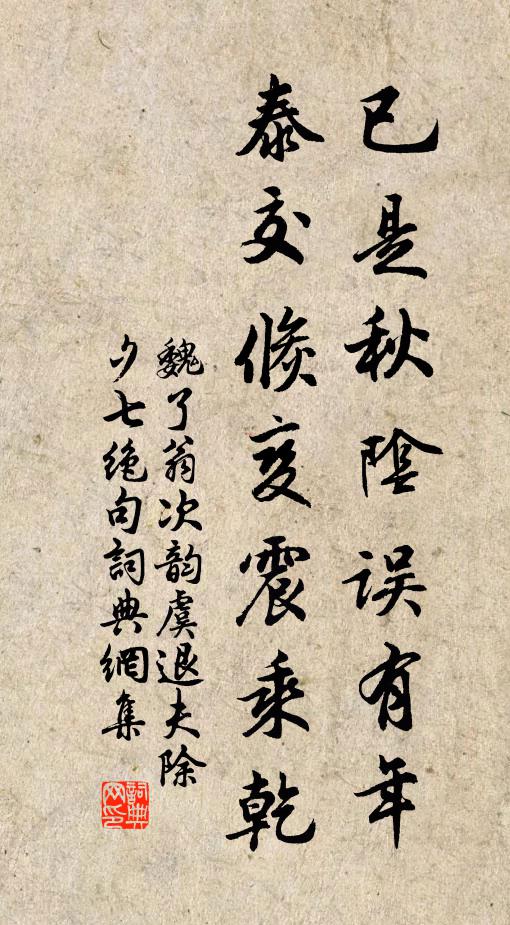 已是秋陰误有年
泰交倏变震乘乾
魏了翁次韵虞退夫除
夕七绝句詞典網集
詞典网印